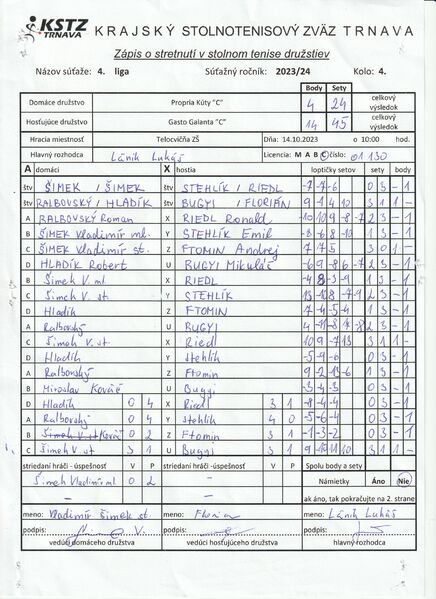 KSTZ TRNAVA KRAJSKÝ STOLNOTENISOVÝ ZVÄZ TRNAVA
Zápis o stretnutí v stolnom tenise družstiev
Názov súťaže: 4. liga Súťažný ročník: 2023/24 Kolo: 4.
Body Sety
Domáce družstvo Propria Kúty "C" 4 24 celkový výsledok
Hosťujúce družstvo Gasto Galanta "C" 14 45 celkový výsledok
Hracia miestnosť Telocvičňa ZŠ Dňa: 14.10.2023 o 10:00 hod.
Hlavný rozhodca Lánik Lukáš Licencia: M A B C číslo: 01 130
A domáci X hostia loptičky setov sety body
štv ŠIMEK / ŠIMEK štv STEHLÍK / RIEDL -7 -7 -6 0 3 - 1
štv RALBOVSKÝ / HLADÍK štv BUGYI / FLORIÁN 3 1 1 -
A RALBOVSKÝ Roman X RIEDL Ronald 2 3 - 1
B ŠIMEK Vladimír ml. Y STEHLÍK Emil 0 3 - 1
C ŠIMEK Vladimír st. Z FTOMIN Andrej 7 7 5 3 0 1 -
D HLADÍK Robert U BUGYI Mikuláš 2 3 - 1
B Šimek V. ml X RIEDL 1 3 - 1
C Šimek V. st Y STEHLÍK 2 3 - 1
D Hladík Z FTOMIN -7 -4 -5 0 3 - 1
A Ralbovský U BUGYI 2 3 - 1
C Šimek V. st X Riedl 3 1 1 -
D Hladík Y Stehlík -5 -9 -6 0 3 - 1
A Ralbovský Z Ftomin 1 3 - 1
B Miroslav Kováč U Bugyi -3 -4 -3 0 3 - 1
D Hladík 0 4 X Riedl 3 1 -8 -4 -4 0 3 - 1
A Ralbovský 0 4 Y Stehlík 4 0 -5 -6 -4 0 3 - 1
B Kováč 0 2 Z Ftomin 3 1 -1 -3 -2 0 3 - 1
C Šimek V. st 3 1 U Bugyi 3 1 3 1 1 -
striedaní hráči - úspešnosť V P striedaní hráči - úspešnosť V P Spolu body a sety
Šimek Vladimír ml 0 2 - Námietky Áno Nie
- - ak áno, tak pokračujte na 2. strane
meno: Vladimír Šimek st. meno: Florian meno: Lánik Lukáš
podpis: podpis: podpis:
vedúci domáceho družstva vedúci hosťujúceho družstva hlavný rozhodca